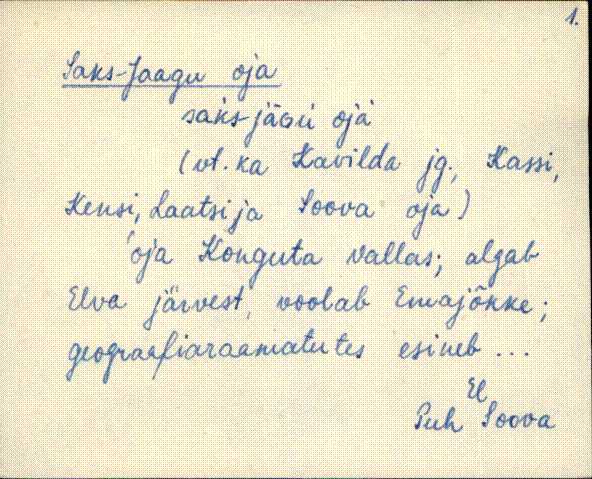 1.
Saks-Jaagu oja
saks-jäGu oja
(vt. ka Kavilda jg., Kassi,
Kensi, Laatsi ja Soova oja)
'oja Konguta vallas; algab
Elva järvest, voolab Emajõkke;
geograafiaraamatutes esineb ...
El
Puh Soova